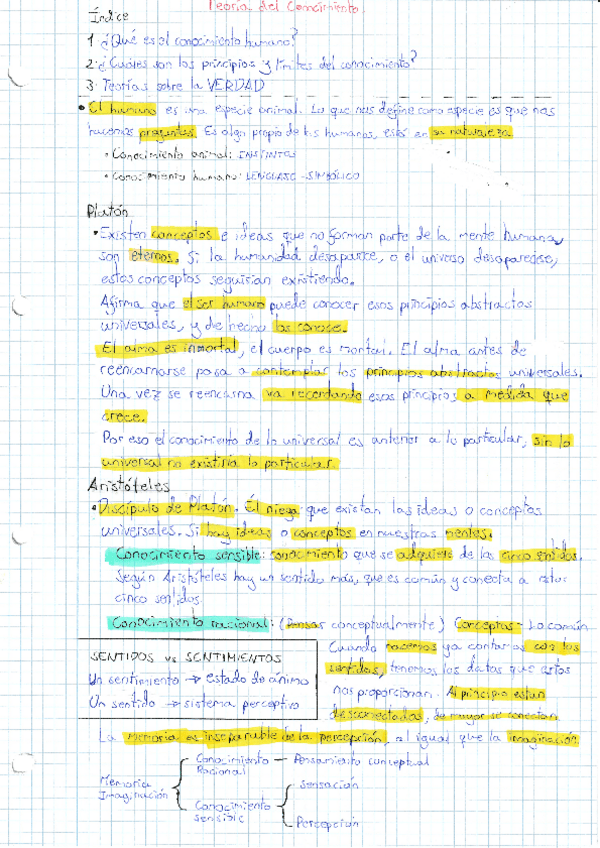 Teoría del Conocimiento.
Índice
1. ¿Qué es el conocimiento humano?
2. ¿Cuáles son los principios y límites del conocimiento?
3. Teorías sobre la VERDAD
• El humano es una especie animal. Lo que nos define como especie es que nos
hacemos preguntas. Es algo propio de los humanos, está en su naturaleza
• Conocimiento animal: INSTINTOS
• Conocimiento humano: LENGUAJE-SIMBÓLICO
Platón
• Existen conceptos e ideas que no forman parte de la mente humana,
son eternos. Si la humanidad desaparece, o el universo desapareciese,
estos conceptos seguirían existiendo.
Afirma que el ser humano puede conocer esos principios abstractos
universales, y de hecho los conoce.
El alma es inmortal, el cuerpo es mortal. El alma antes de
reencarnarse pasa a contemplar los principios abstractos universales.
Una vez se reencarna va recordando esos principios a medida que
crece.
Por eso el conocimiento de lo universal es anterior a lo particular, sin lo
universal no existiría lo particular
Aristóteles
• Discípulo de Platón. Él niega que existan las ideas o conceptos
universales. Si hay ideas o conceptos en nuestras mentes.
Conocimiento sensible: conocimiento que se adquiere de los cinco sentidos.
Según Aristóteles hay un sentido más, que es común y conecta a estos
cinco sentidos.
Conocimiento racional: (Pensar conceptualmente) Conceptos - Lo común
Cuando nacemos ya contamos con los
sentidos, tenemos los datos que estos
nos proporcionan. Al principio están
desconectados, de mayor se conectan
SENTIDOS vs SENTIMIENTOS
Un sentimiento → estado de ánimo
Un sentido → sistema perceptivo
La memoria es inseparable de la percepción, al igual que la imaginación
Memoria
Imaginación
Conocimiento
Racional
— Pensamiento conceptual
Conocimiento
sensible
Sensación
Percepción